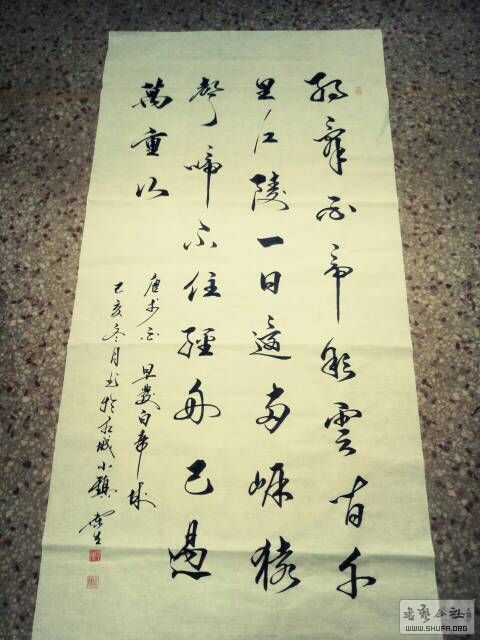 朝辞白帝彩雲间千
里江陵一日還两岸猿
聲啼不住輕舟已過
萬重山
唐李白 早發白帝城
己亥冬月书於 城小鎮 生
書藝公社
WWW.SHUFA.ORG